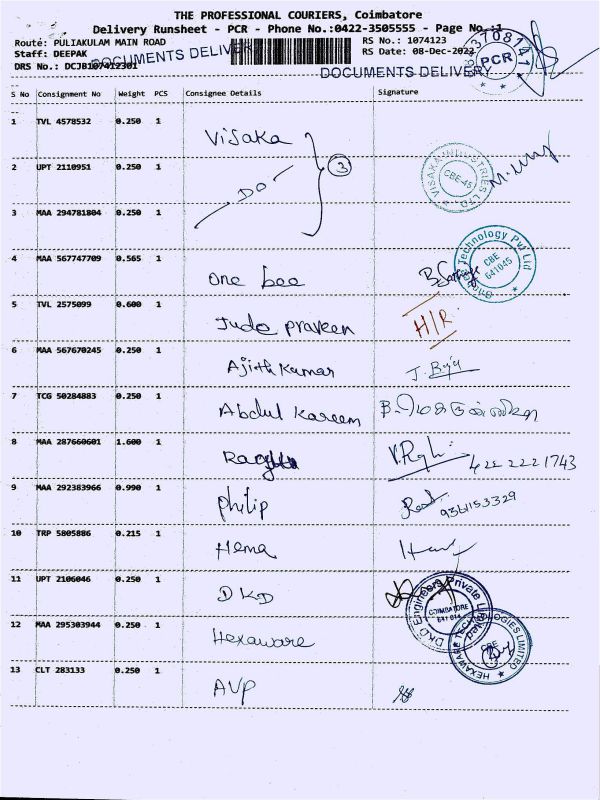 THE PROFESSIONAL COURIERS, Coimbatore
Delivery Runsheet - PCR - Phone No.:0422-3505555 - Page No.:1
Route: PULIAKULAM MAIN ROAD
Staff: DEEPAK
DRS No.: DCJB107412301
RS No.: 1074123
RS Date: 08-Dec-2022
DOCUMENTS DELIVERY
DOCUMENTS DELIVERY
PCR
S No Consignment No Weight PCS Consignee Details Signature
1 TVL 4578532 0.250 1 Visaka
2 UPT 2110951 0.250 1 DO
3
VISAKA INDUSTRIES LTD.
CBE-45
3 MAA 294781804 0.250 1
4 MAA 567747709 0.565 1 One bee
Technology Pvt Ltd
CBE
641045
5 TVL 2575099 0.600 1 Jude praveen H/R
6 MAA 567670245 0.250 1 Ajith Kumar
7 TCG 50284883 0.250 1 Abdul Kareem
8 MAA 287660601 1.600 1 422 2221743
9 MAA 292383966 0.990 1 Philip 9361153329
10 TRP 5805886 0.215 1 Hema
11 UPT 2106046 0.250 1 DKD
DKD Engineers Private Limited
COIMBATORE
641 014
12 MAA 295303944 0.250 1 Hexaware
HEXAWARE TECHNOLOGIES LIMITED
CBE
13 CLT 283133 0.250 1 AVP